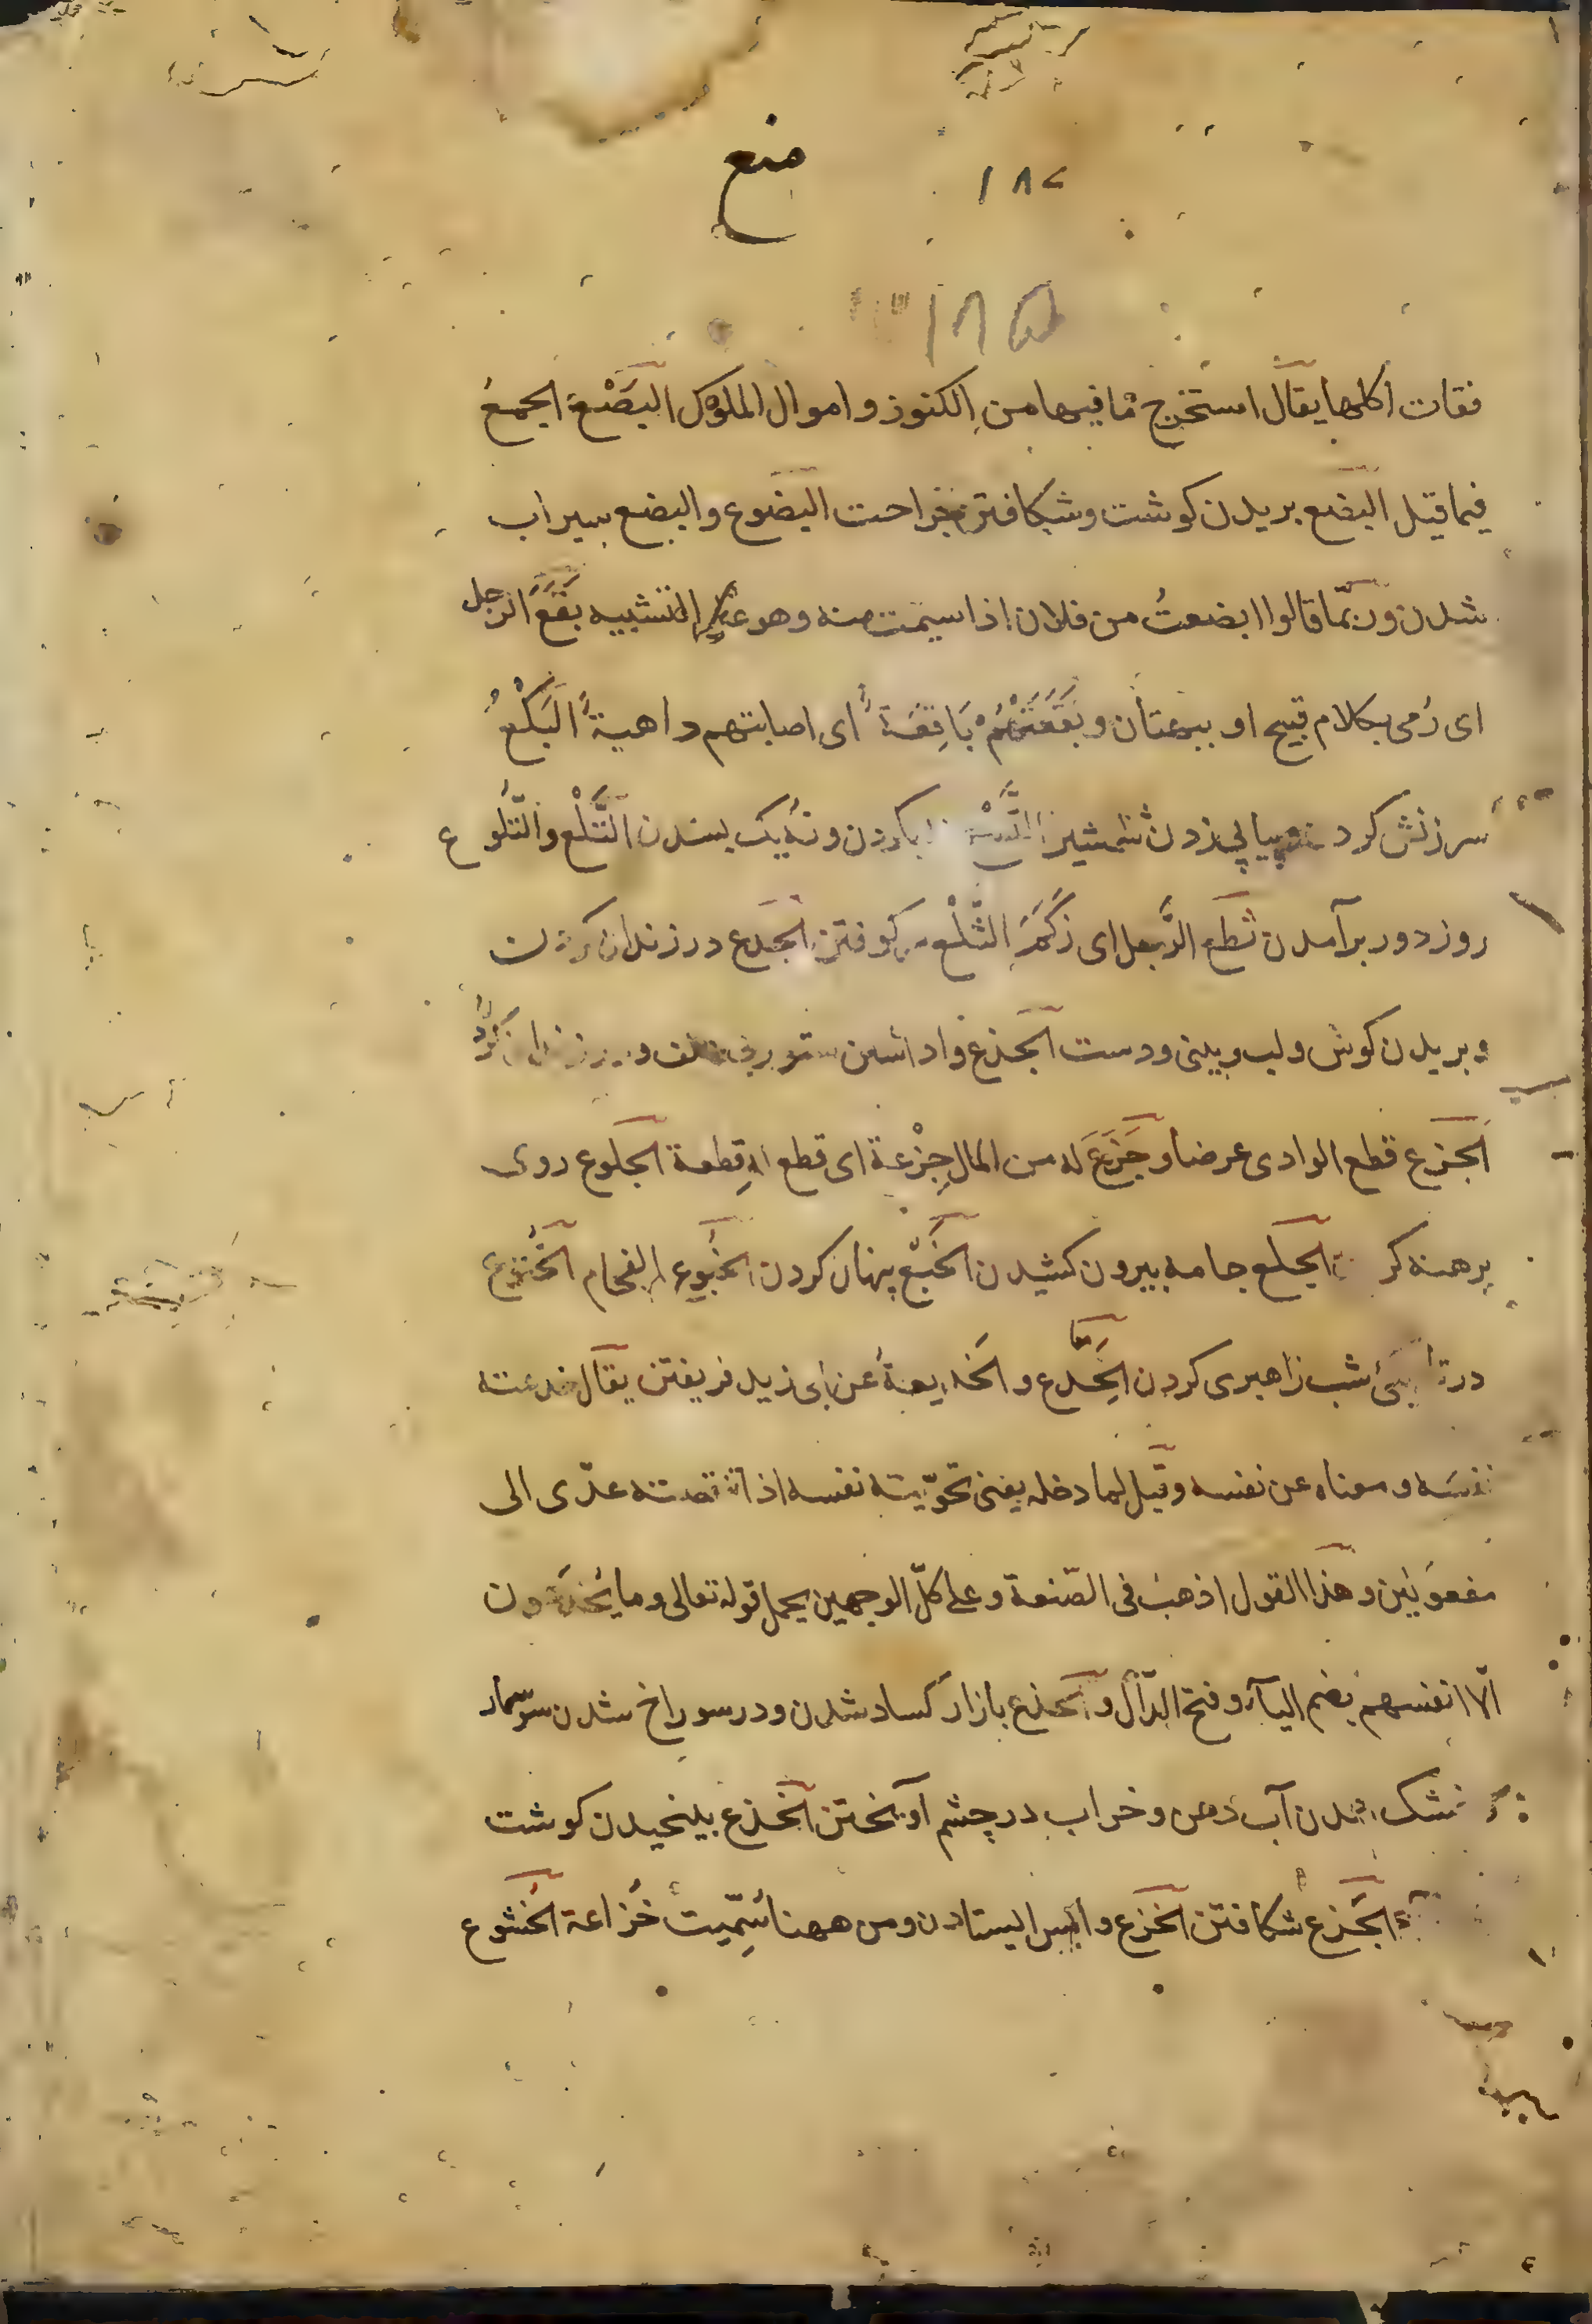 منع
۱۸۲
۱۸۵
فقات اكلها يقال استخرج ما فيها من الكنوز و اموال الملوك البَضْعُ الجمعُ
فيما قيل البضع بريدن كوشت وشكافتن جراحت البضوع والبضع سيراب
شدن وربّما قالوا بضعتُ من فلان اذا سيمت منه وهو على التشبيه بَقَعَ الرجل
اى رُمى بكلام قبيح او ببهتان و بَقَعَتْهُمْ بَاقِعَةٌ اى اصابتهم داهيةٌ البَكْعُ
سرزنش كردن وپياپى زدن شمشير كردن ونه يک بسندن التَّلْع والتُّلُوع
روز دور برآمدن نَطَعَ الرَّجل اى زكم الثَّلْع سر كوفتن الجدع در زندان كردن
و بريدن كوش ولب وبينى ودست الجذع وا داشتن ستور بى علف و
الجَزع قطع الوادى عرضا وجَزَعَ له من المال جِزْعة اى قطع له قِطعة الجلوع روى
برهنه كردن الجلع جامه بيرون كشيدن الخَبْع پنهان كردن الخُبُوع الفحام الخُتوع
در شب راهبرى كردن الخِدع معا و الخديعةُ عن ابى زيد فريفتن يقال خدعته
نفسَه و معناه عن نفسه وقيل لما دخله يعنى تخوّنته نفسه اذا تنقصته عدّى الى
مفعولين وهذا القول اذهبُ فى الصّنعة وعلى كلّ الوجهين يحمل قوله تعالى وما يُخدَعون
الّا انفسهم بضم الياء وفتح الدّال و الخدع بازار كساد شدن ودر سوراخ شدن سوسمار
و خشک شدن آب دهن و خراب در چشم آويختن الخذع بيلنحيدن كوشت
الخَزع شكافتن الخزع وا پس ايستادن ومن ههنا سُمّيت خُزاعة الخُشوع